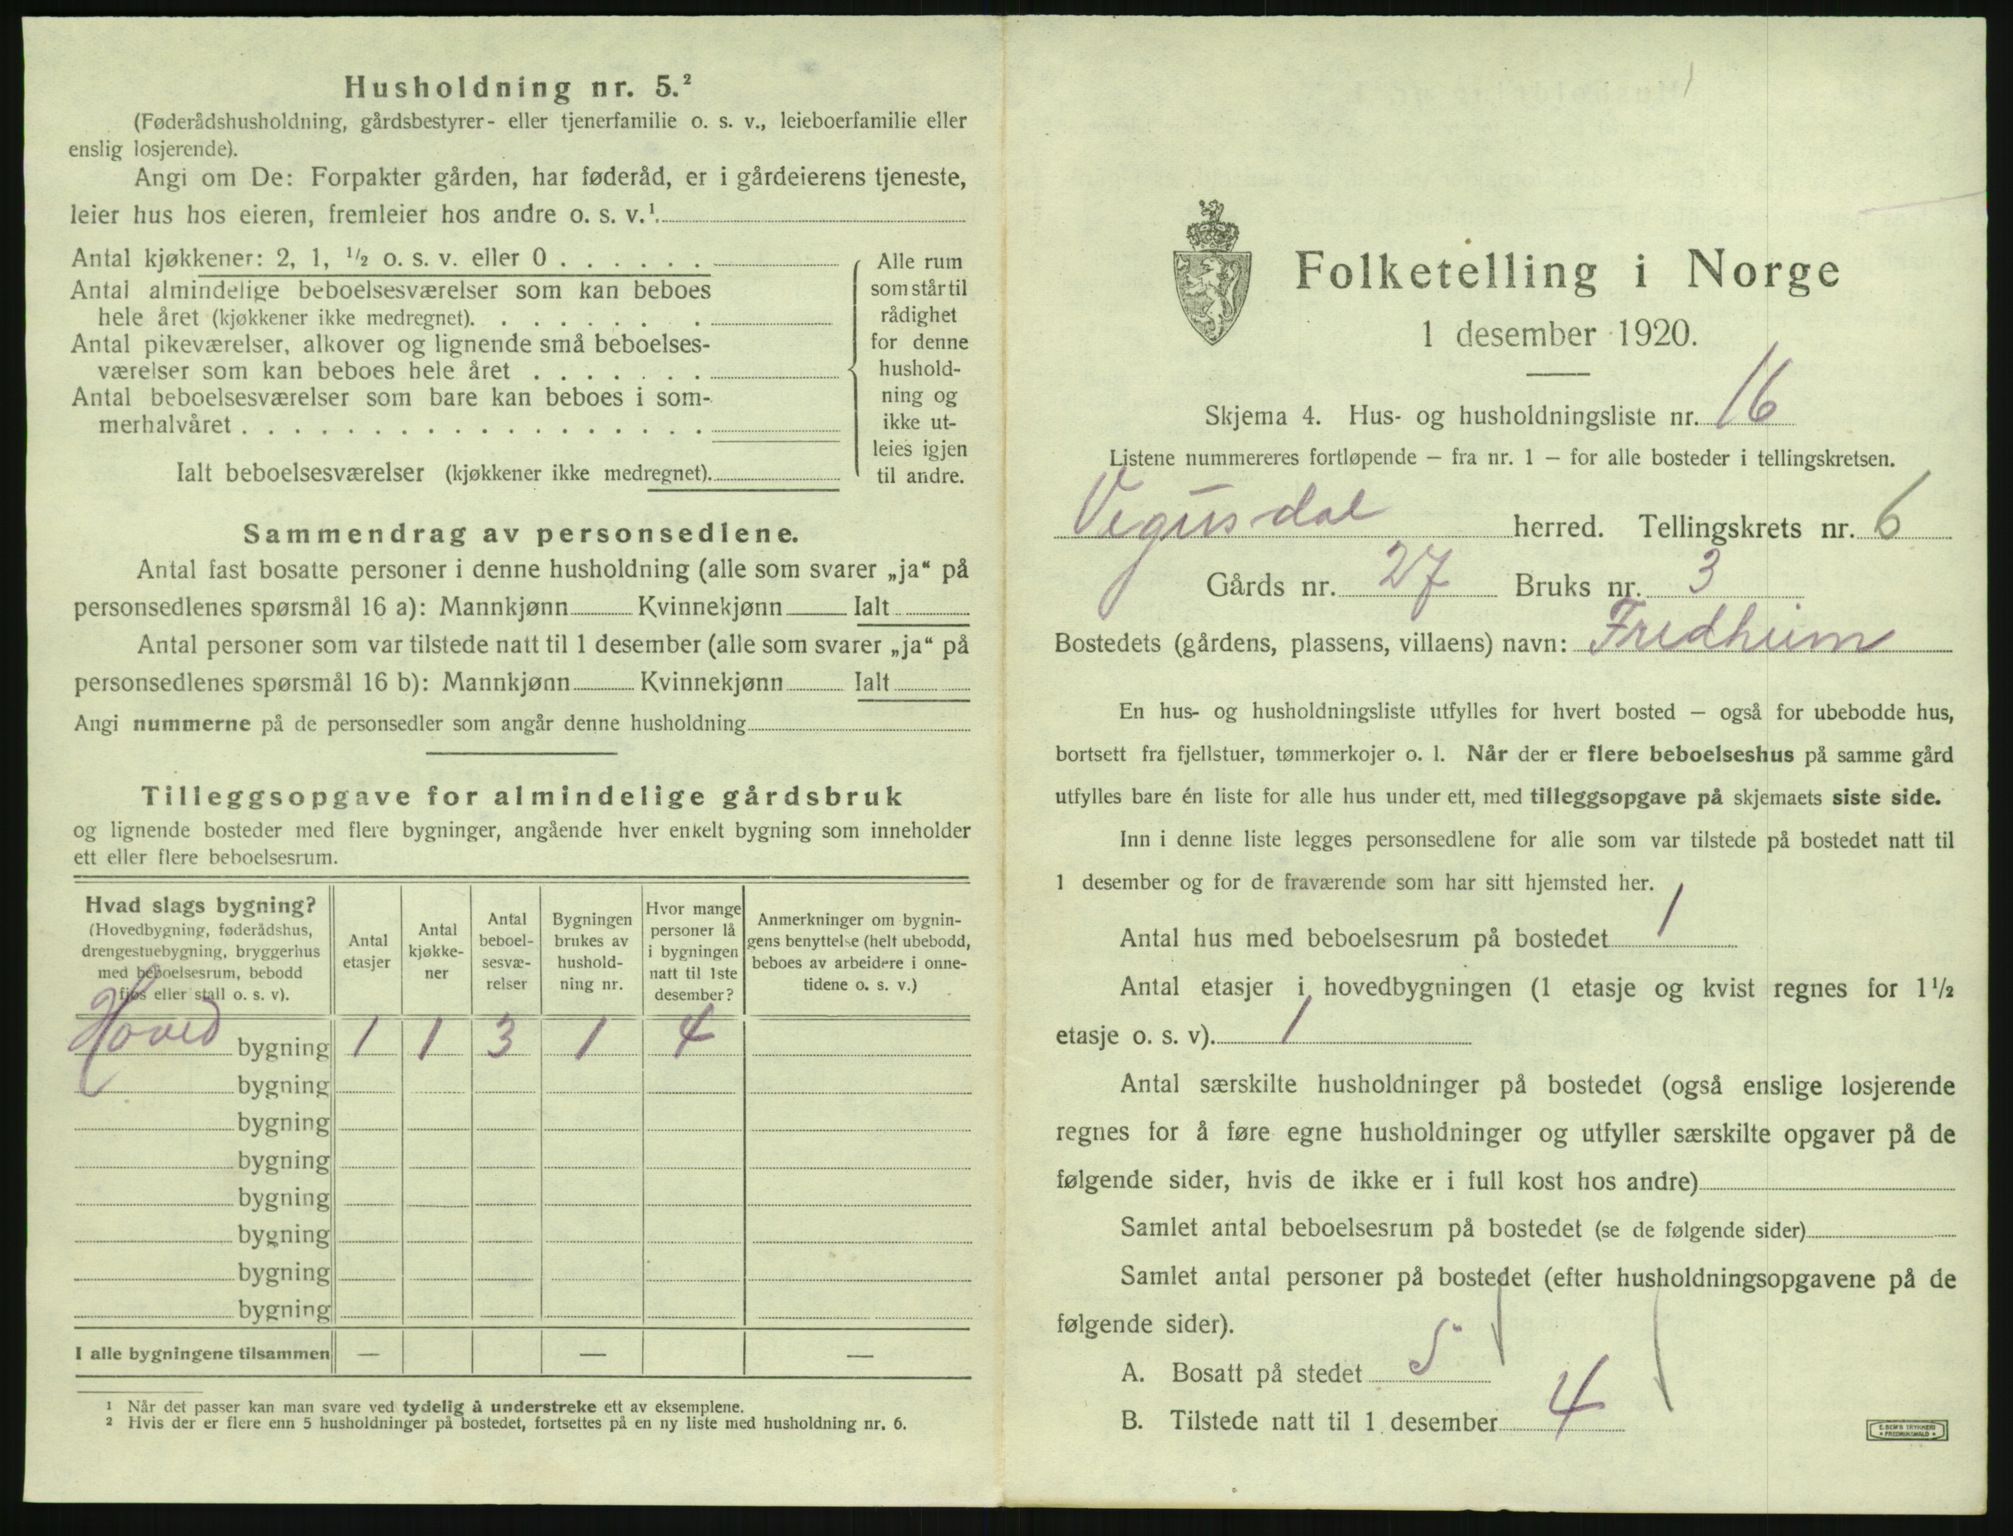 Husholdning nr. 5.²
(Føderådshusholdning, gårdsbestyrer- eller tjenerfamilie o. s. v., leieboerfamilie eller
enslig losjerende).
Angi om De: Forpakter gården, har føderåd, er i gårdeierens tjeneste,
leier hus hos eieren, fremleier hos andre o. s. v.¹.
Antal kjøkkener: 2, 1, ½ o. s. v. eller 0 . . . . . .
Antal almindelige beboelsesværelser som kan beboes
hele året (kjøkkener ikke medregnet). . . . . . . .
Antal pikeværelser, alkover og lignende små beboelses-
værelser som kan beboes hele året . . . . . . .
Antal beboelsesværelser som bare kan beboes i som-
merhalvåret . . . . . . . . . . . . . . . . . .
Ialt beboelsesværelser (kjøkkener ikke medregnet).
Alle rum
som står til
rådighet
for denne
hushold-
ning og
ikke ut-
leies igjen
til andre.
Sammendrag av personsedlene.
Antal fast bosatte personer i denne husholdning (alle som svarer „ja“ på
personsedlenes spørsmål 16 a): Mannkjønn Kvinnekjønn Ialt
Antal personer som var tilstede natt til 1 desember (alle som svarer „ja“ på
personsedlenes spørsmål 16 b): Mannkjønn Kvinnekjønn Ialt
Angi nummerne på de personsedler som angår denne husholdning
Tilleggsopgave for almindelige gårdsbruk
og lignende bosteder med flere bygninger, angående hver enkelt bygning som inneholder
ett eller flere beboelsesrum.
Hvad slags bygning?
(Hovedbygning, føderådshus,
drengestuebygning, bryggerhus
med beboelsesrum, bebodd
fjøs eller stall o. s. v).
Antal
etasjer
Antal
kjøkke-
ner
Antal
beboel-
sesvæ-
relser
Bygningen
brukes av
hushold-
ning nr.
Hvor mange
personer lå
i bygningen
natt til 1ste
desember?
Anmerkninger om bygnin-
gens benyttelse (helt ubebodd,
beboes av arbeidere i onne-
tidene o. s. v.)
Hoved bygning 1 1 3 1 4
bygning
bygning
bygning
bygning
bygning
bygning
bygning
I alle bygningene tilsammen — — —
¹ Når det passer kan man svare ved tydelig å understreke ett av eksemplene.
² Hvis der er flere enn 5 husholdninger på bostedet, fortsettes på en ny liste med husholdning nr. 6.
Folketelling i Norge
1 desember 1920.
Skjema 4. Hus- og husholdningsliste nr. 16
Listene nummereres fortløpende – fra nr. 1 – for alle bosteder i tellingskretsen.
Vegusdal herred. Tellingskrets nr. 6
Gårds nr. 27 Bruks nr. 3
Bostedets (gårdens, plassens, villaens) navn: Fredheim
En hus- og husholdningsliste utfylles for hvert bosted – også for ubebodde hus,
bortsett fra fjellstuer, tømmerkojer o. l. Når der er flere beboelseshus på samme gård
utfylles bare én liste for alle hus under ett, med tilleggsopgave på skjemaets siste side.
Inn i denne liste legges personsedlene for alle som var tilstede på bostedet natt til
1 desember og for de fraværende som har sitt hjemsted her.
Antal hus med beboelsesrum på bostedet 1
Antal etasjer i hovedbygningen (1 etasje og kvist regnes for 1½
etasje o. s. v). 1
Antal særskilte husholdninger på bostedet (også enslige losjerende
regnes for å føre egne husholdninger og utfyller særskilte opgaver på de
følgende sider, hvis de ikke er i full kost hos andre)
Samlet antal beboelsesrum på bostedet (se de følgende sider)
Samlet antal personer på bostedet (efter husholdningsopgavene på de
følgende sider).
A. Bosatt på stedet 5
B. Tilstede natt til 1 desember 4